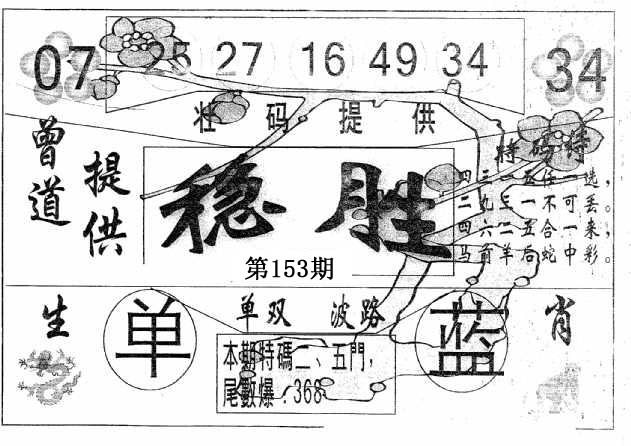 07 25 27 16 49 34 34
壮码提供
曾道
提供
稳胜
特码诗
四三一五任一选，
二九三一不可丢。
四六二五合一来，
马前羊后蛇中彩。
第153期
生
肖
单双 波路
单
蓝
本期特碼二、五門，
尾數爆：368